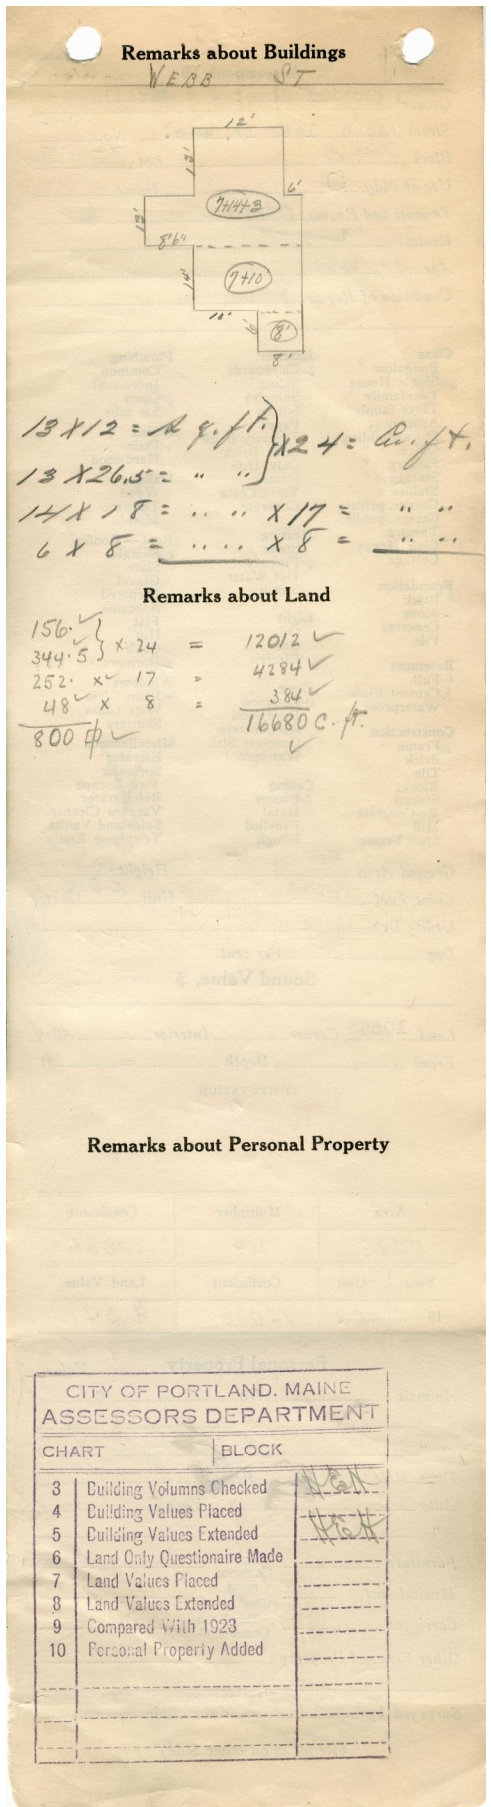 Remarks about Buildings
WEBB ST
12'
13'
6'
7+14+3
13'
8'6"
14'
7+10
10'
6'
8'
8'
13 X 12 = Sq. ft. } X 24 = Cu. ft.
13 X 26.5 = " "
14 X 18 = " " X 17 = " "
6 X 8 = " " X 8 = " "
Remarks about Land
156. ✓ } x 24 = 12012 ✓
344.5
252. x ✓ 17 = 4284 ✓
48 ✓ x 8 = 384 ✓
800 ✓ 16680 C. ft.
✓
Remarks about Personal Property
CITY OF PORTLAND, MAINE
ASSESSORS DEPARTMENT
CHART BLOCK
3 Building Volumns Checked
4 Building Values Placed
5 Building Values Extended
6 Land Only Questionaire Made
7 Land Values Placed
8 Land Values Extended
9 Compared With 1923
10 Personal Property Added